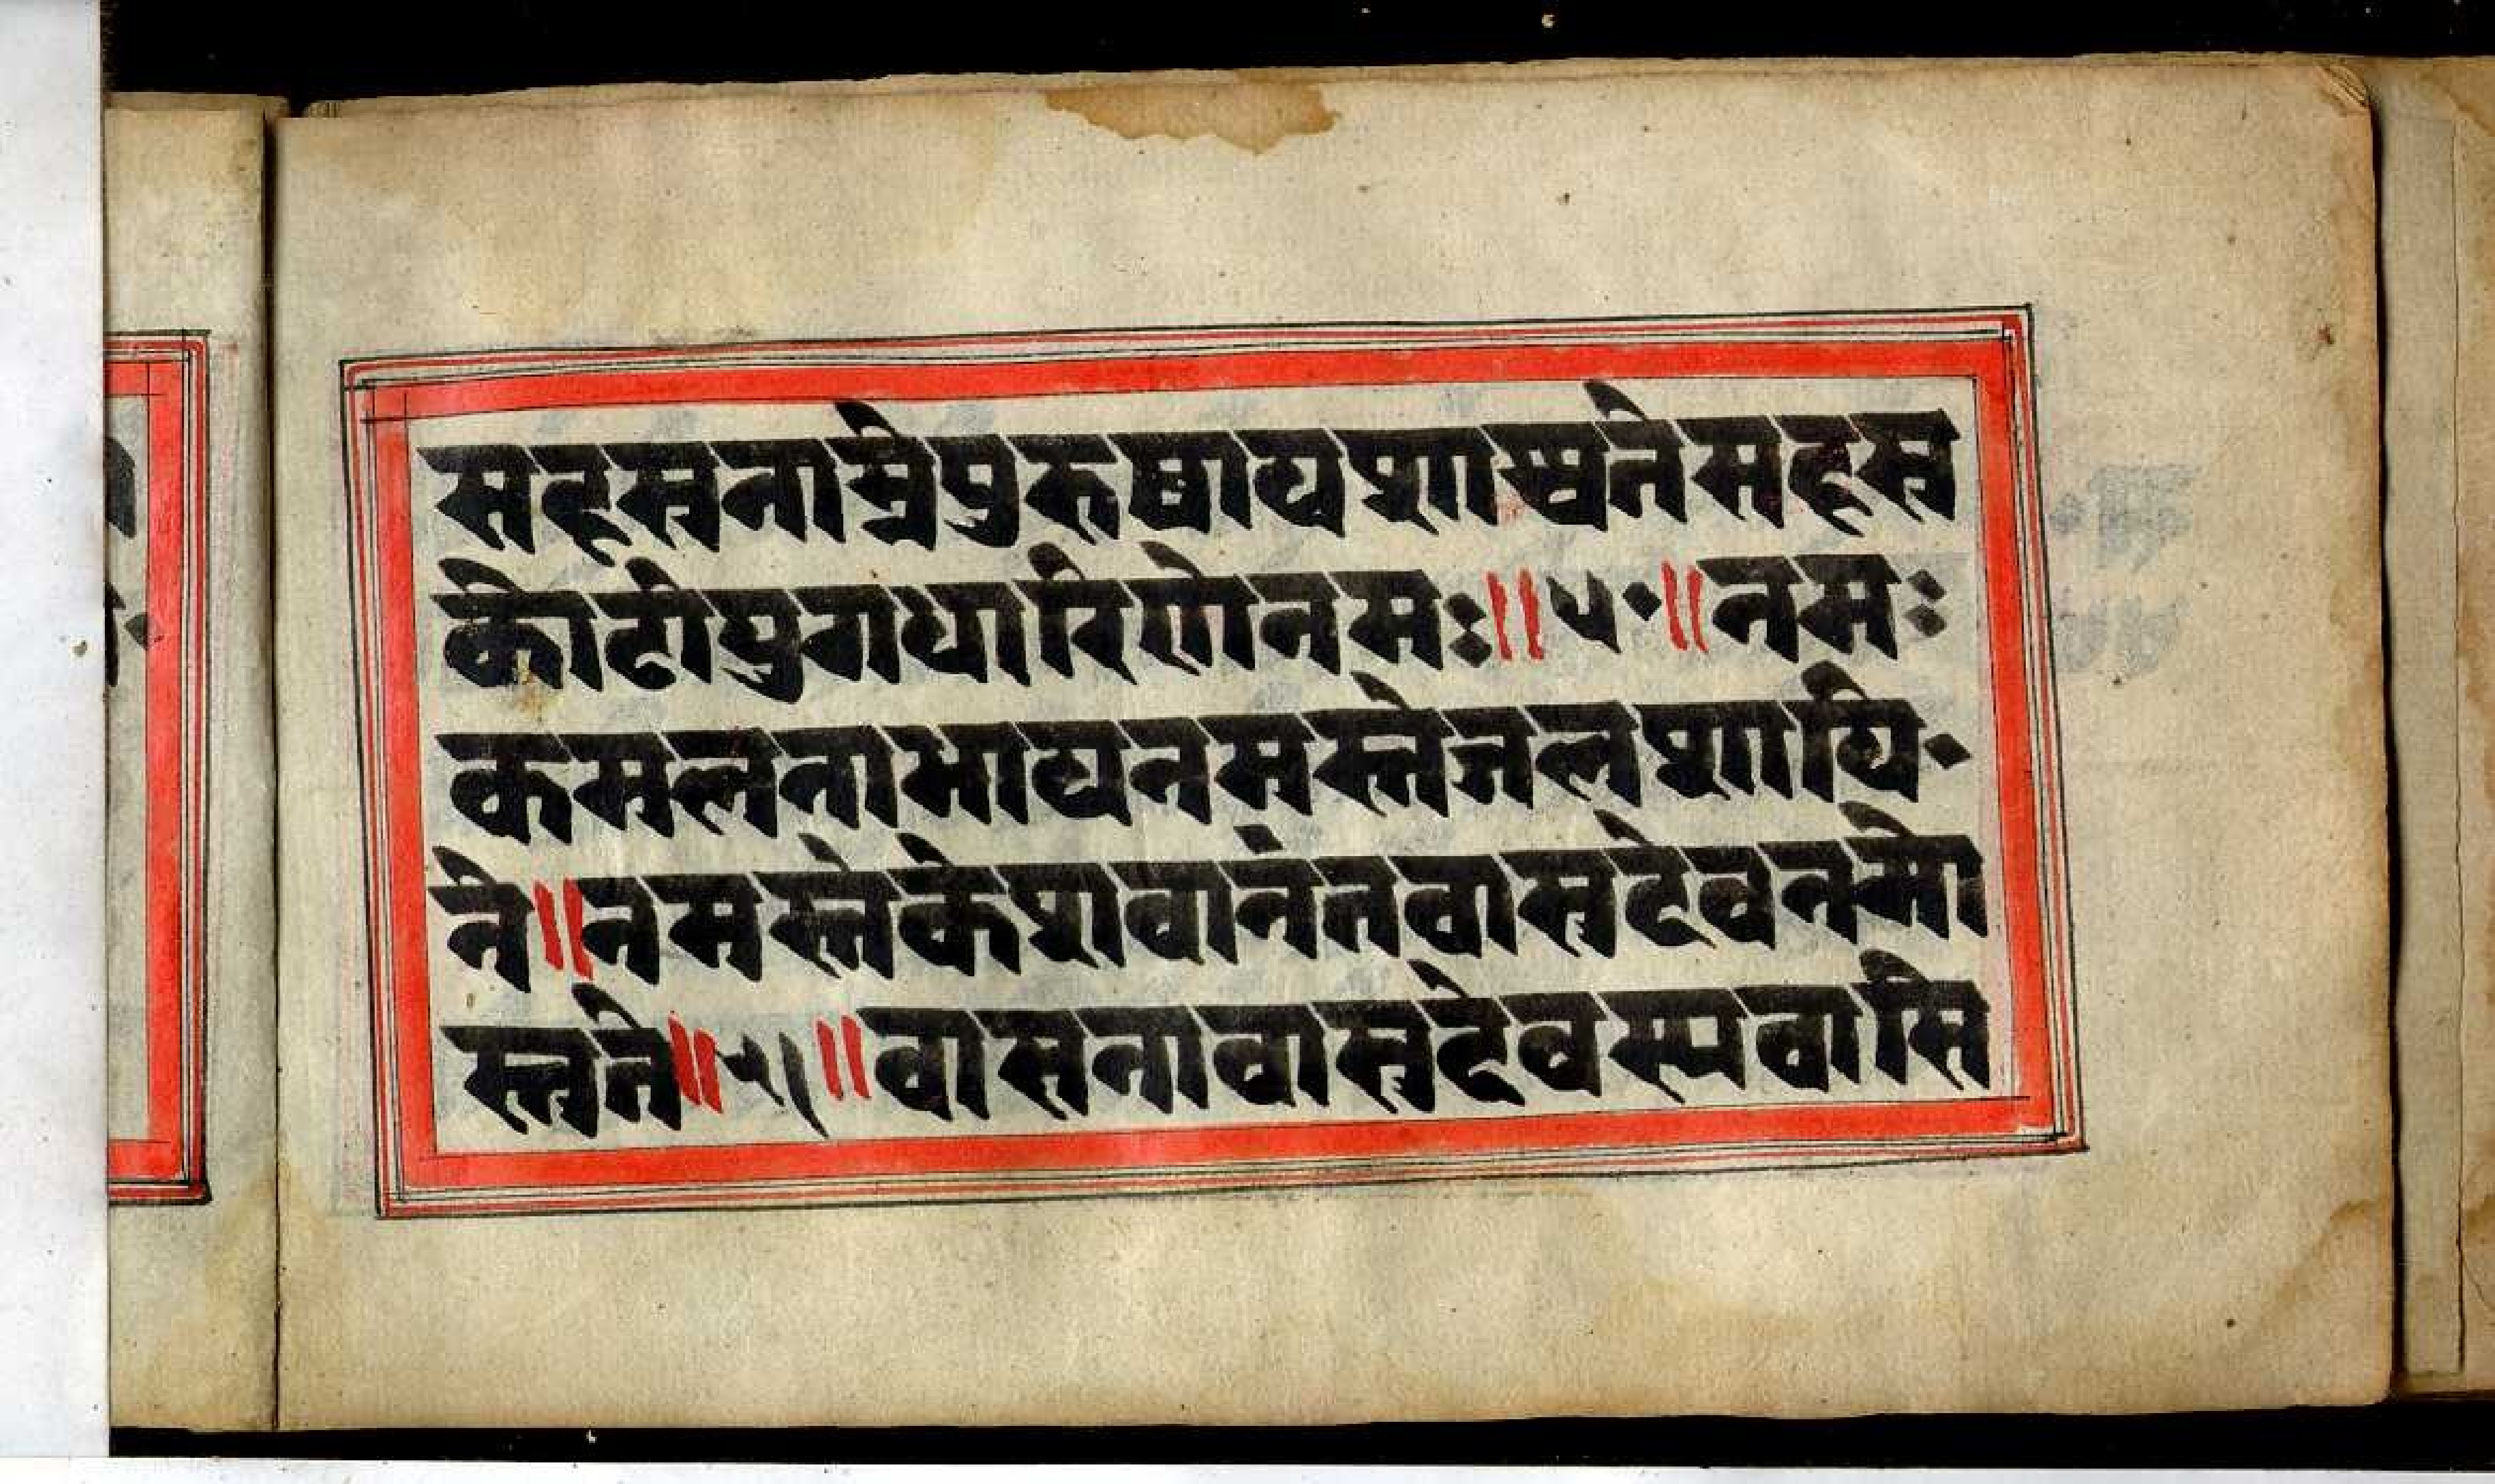 सहस्रनाम्ने पुरुषाय शाश्वते सहस्र
कोटी युगधारिणे नमः ॥ ५० ॥ नमः
कमलनाभाय नमस्ते जलशायि
ने ॥ नमस्ते केशवानंत वासुदेव नमो
स्तुते ॥ ५१ ॥ वासनावासुदेवस्य वासि